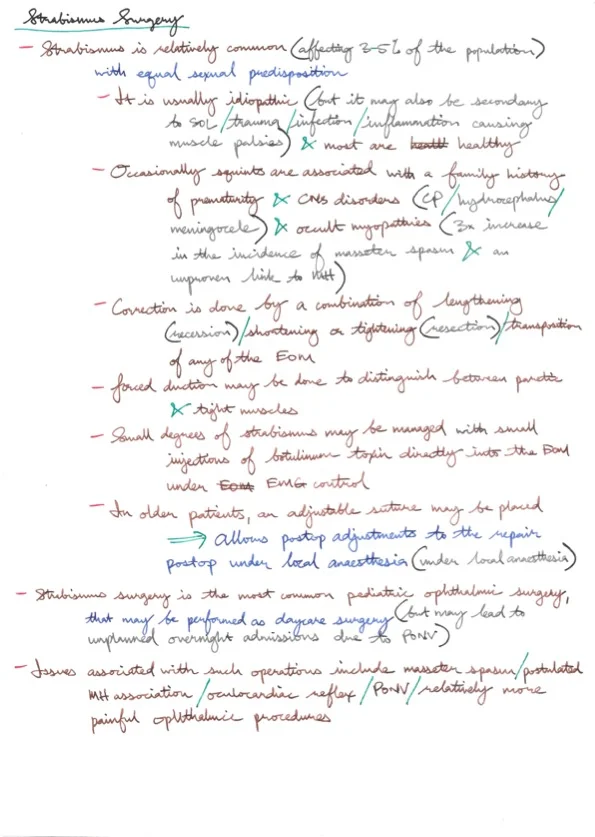 Strabismus Surgery
– Strabismus is relatively common (affecting 3-5% of the population)
with equal sexual predisposition
– It is usually idiopathic (but it may also be secondary
to SOL/trauma/infection/inflammation causing
muscle palsies) & most are healthy
– Occasionally squints are associated with a family history
of prematurity & CNS disorders (CP/hydrocephalus/
meningocele) & occult myopathies (3x increase
in the incidence of masseter spasm & an
unproven link to MH)
– Correction is done by a combination of lengthening
(recession)/shortening or tightening (resection)/transposition
of any of the EOM
– forced duction may be done to distinguish between paretic
& tight muscles
– Small degrees of strabismus may be managed with small
injections of botulinum toxin directly into the EOM
under EOM EMG control
– In older patients, an adjustable suture may be placed
⇒ allows postop adjustments to the repair
postop under local anaesthesia (under local anaesthesia)
– Strabismus surgery is the most common pediatric ophthalmic surgery,
that may be performed as daycare surgery (but may lead to
unplanned overnight admissions due to PONV)
– Issues associated with such operations include masseter spasm/postulated
MH association/oculocardiac reflex/PONV/relatively more
painful ophthalmic procedures